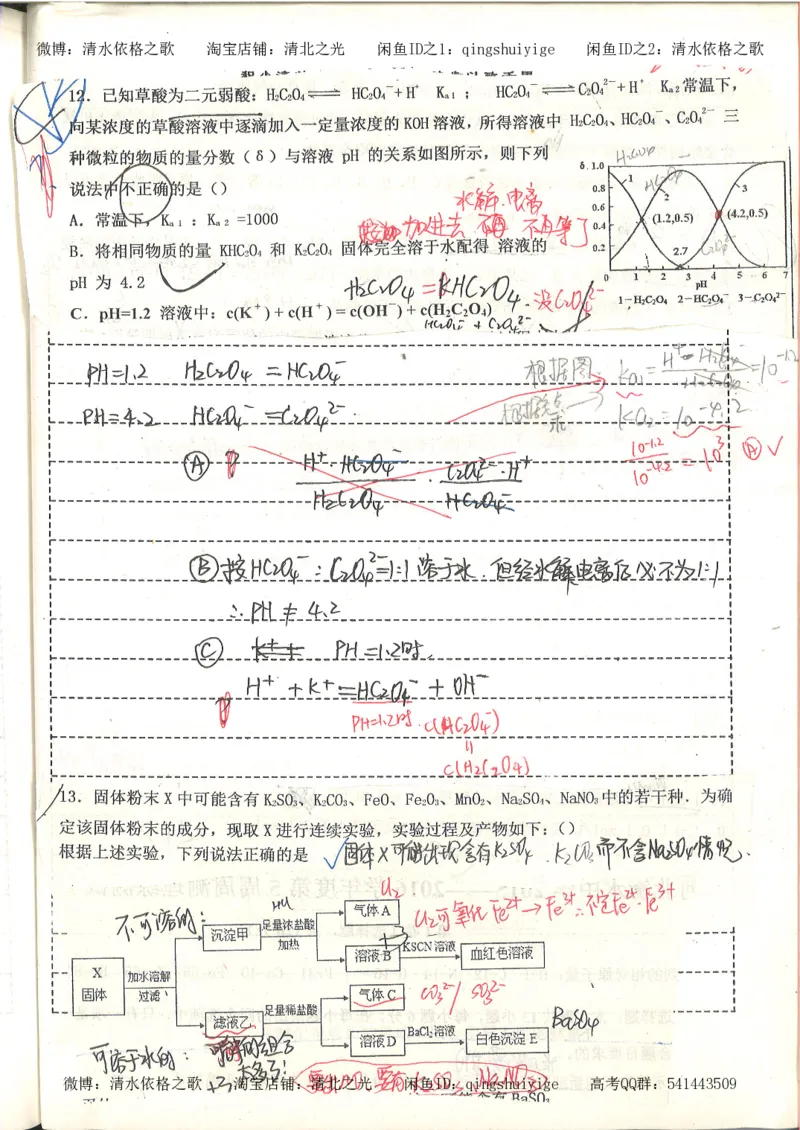 微博: 清水依格之歌 淘宝店铺: 清北之光 闲鱼ID之1: qingshuiyige 闲鱼ID之2: 清水依格之歌
12. 已知草酸为二元弱酸: H₂C₂O₄ ⇌ HC₂O₄⁻+H⁺ Kₐ₁ ; HC₂O₄⁻ ⇌ C₂O₄²⁻+H⁺ Kₐ₂ 常温下,
向某浓度的草酸溶液中逐滴加入一定量浓度的 KOH 溶液, 所得溶液中 H₂C₂O₄、HC₂O₄⁻、C₂O₄²⁻ 三
种微粒的物质的量分数(δ)与溶液 pH 的关系如图所示, 则下列
说法中不正确的是()
水解.电离
A. 常温下, Kₐ₁ : Kₐ₂ =1000
加进去 不再等了
B. 将相同物质的量 KHC₂O₄ 和 K₂C₂O₄ 固体完全溶于水配得 溶液的
pH 为 4.2
H₂C₂O₄ = KHC₂O₄. 没C₂O₄²⁻
C. pH=1.2 溶液中: c(K⁺)+c(H⁺)=c(OH⁻)+c(H₂C₂O₄)
HC₂O₄⁻ + C₂O₄²⁻
δ 1.0
0.8
0.6
0.4
0.2
1 2 3
(1.2,0.5) (4.2,0.5)
2.7
0 1 2 3 4 5 6 7
pH
1—H₂C₂O₄ 2—HC₂O₄⁻ 3—C₂O₄²⁻
PH=1.2 H₂C₂O₄ = HC₂O₄⁻
根据图
Ka₁ = = 10⁻¹·²
PH=4.2 HC₂O₄⁻ = C₂O₄²⁻.
Ka₂ = 10⁻⁴·²
10⁻¹·² / 10⁻⁴·² = 10³ Ⓐ ✓
Ⓐ H⁺·HC₂O₄⁻ / H₂C₂O₄ · C₂O₄²⁻·H⁺ / HC₂O₄⁻
Ⓑ 按HC₂O₄⁻ : C₂O₄²⁻=1:1 溶于水. 但经水解电离后必不为1:1
∴ PH ≠ 4.2
Ⓒ PH=1.2时,
H⁺ + K⁺ = HC₂O₄⁻ + OH⁻
PH=1.2时. c(HC₂O₄⁻)
=
c(H₂C₂O₄)
13. 固体粉末 X 中可能含有 K₂SO₃、K₂CO₃、FeO、Fe₂O₃、MnO₂、Na₂SO₄、NaNO₃ 中的若干种. 为确
定该固体粉末的成分, 现取 X 进行连续实验, 实验过程及产物如下: ()
根据上述实验, 下列说法正确的是
固体X可能出现含有K₂SO₄. K₂CO₃而不含Na₂SO₄情况.
Cl₂
Cl₂可氧化Fe²⁺→Fe³⁺ ∴不定Fe²⁺.Fe³⁺
不可溶的:
沉淀甲
足量浓盐酸
加热
气体 A
溶液 B
KSCN 溶液
血红色溶液
X
固体
加水溶解
过滤
滤液乙
足量稀盐酸
气体 C
CO₃²⁻/SO₃²⁻
溶液 D
BaCl₂ 溶液
白色沉淀 E
BaSO₄
可溶于水的:
微博: 清水依格之歌 淘宝店铺: 清北之光 闲鱼ID之2: qingshuiyige 高考QQ群: 541443509